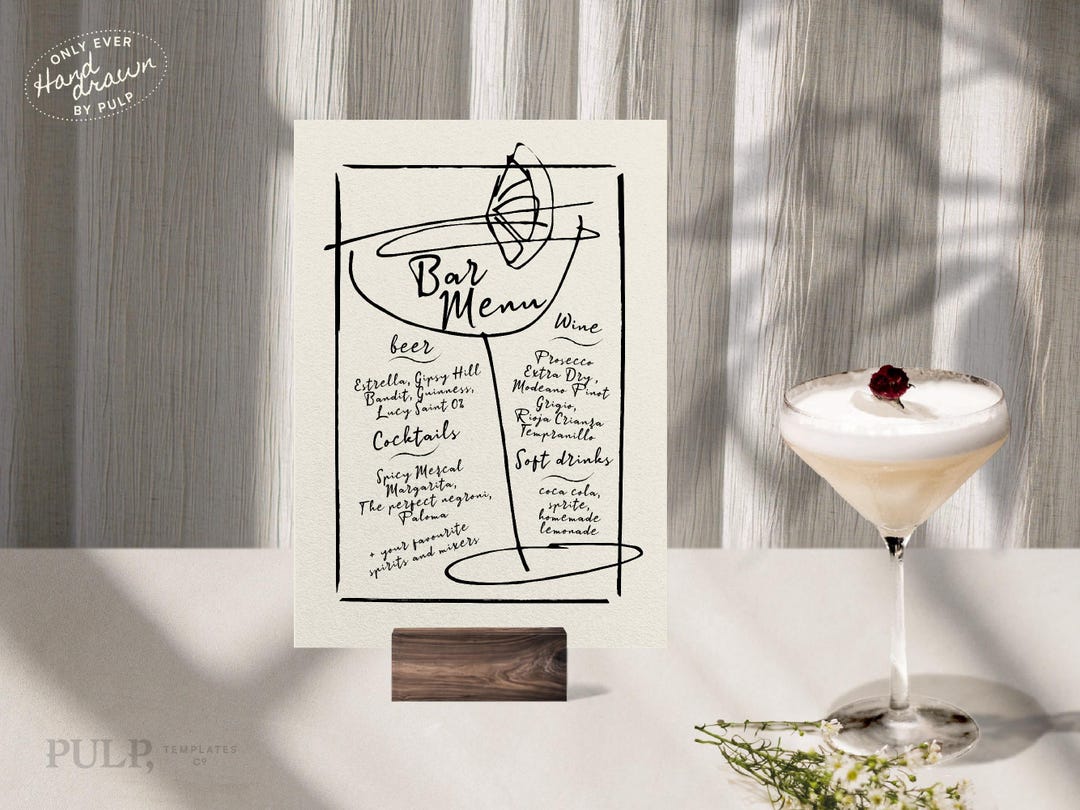 ONLY EVER
Hand
drawn
BY PULP
Bar
Menu
beer
Estrella, Gipsy Hill
Bandit, Guinness,
Lucy Saint 08
Cocktails
Spicy Mezcal
Margarita,
The perfect negroni,
Paloma
+ your favourite
spirits and mixers
Wine
Prosecco
Extra Dry,
Modeano Pinot
Grigio,
Rioja Crianza
Tempranillo
Soft drinks
coca cola,
sprite,
homemade
lemonade
PULP,
TEMPLATES
CO